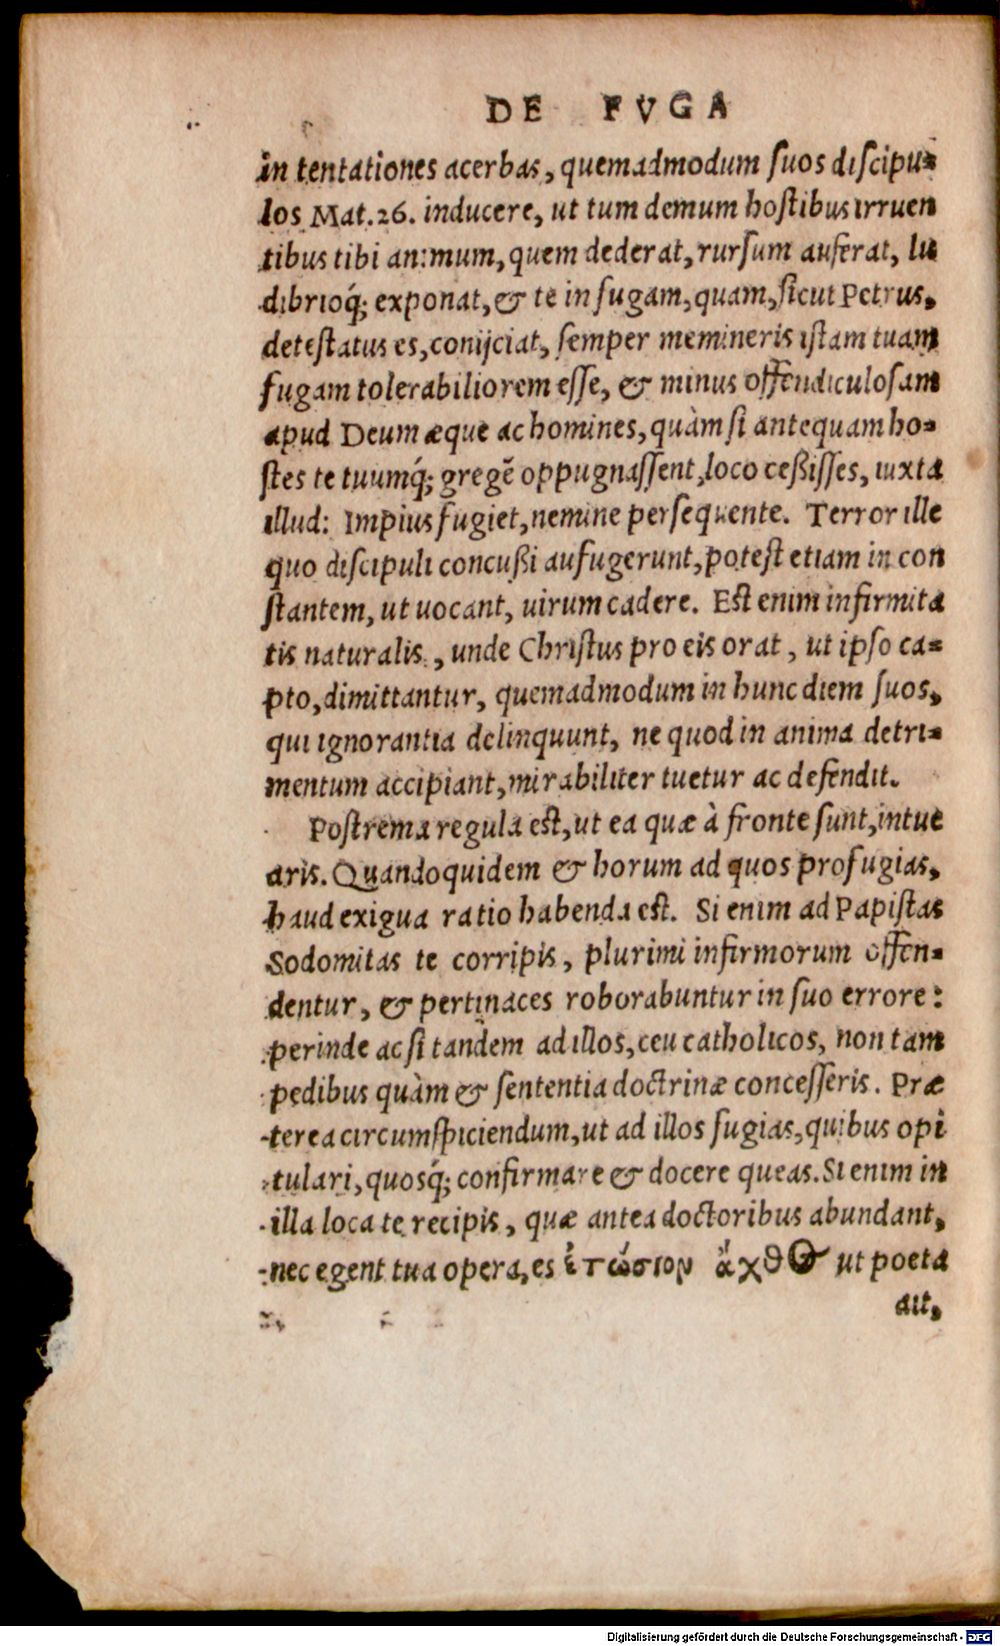 DE FVGA
in tentationes acerbas, quemadmodum ſuos diſcipu⸗
los Mat. 26. inducere, ut tum demum hoſtibus irruen
tibus tibi animum, quem dederat, rurſum auferat, lu
dibrioq́; exponat, & te in fugam, quam, ſicut Petrus,
deteſtatus es, conijciat, ſemper memineris iſtam tuam
fugam tolerabiliorem eſſe, & minus offendiculoſam
apud Deum æque ac homines, quàm ſi antequam ho⸗
ſtes te tuumq́; gregẽ oppugnaſſent, loco ceßiſſes, iuxta
illud: Impius fugiet, nemine perſequente. Terror ille
quo diſcipuli concußi aufugerunt, poteſt etiam in con
ſtantem, ut uocant, uirum cadere. Eſt enim infirmita
tis naturalis, unde Chriſtus pro eis orat, ut ipſo ca⸗
pto, dimittantur, quemadmodum in hunc diem ſuos,
qui ignorantia delinquunt, ne quod in anima detri⸗
mentum accipiant, mirabiliter tuetur ac defendit.
Poſtrema regula eſt, ut ea quæ à fronte ſunt, intue
aris. Quandoquidem & horum ad quos profugias,
haud exigua ratio habenda eſt. Si enim ad Papiſtas
Sodomitas te corripis, plurimi infirmorum offen⸗
dentur, & pertinaces roborabuntur in ſuo errore:
perinde ac ſi tandem ad illos, ceu catholicos, non tam
pedibus quàm & ſententia doctrinæ conceſſeris. Præ
terea circumſpiciendum, ut ad illos fugias, quibus opi
tulari, quosq́; confirmare & docere queas. Si enim in
illa loca te recipis, quæ antea doctoribus abundant,
nec egent tua opera, es ἐτώσιον ἄχθος ut poeta
ait,
Digitalisierung gefördert durch die Deutsche Forschungsgemeinschaft - DFG